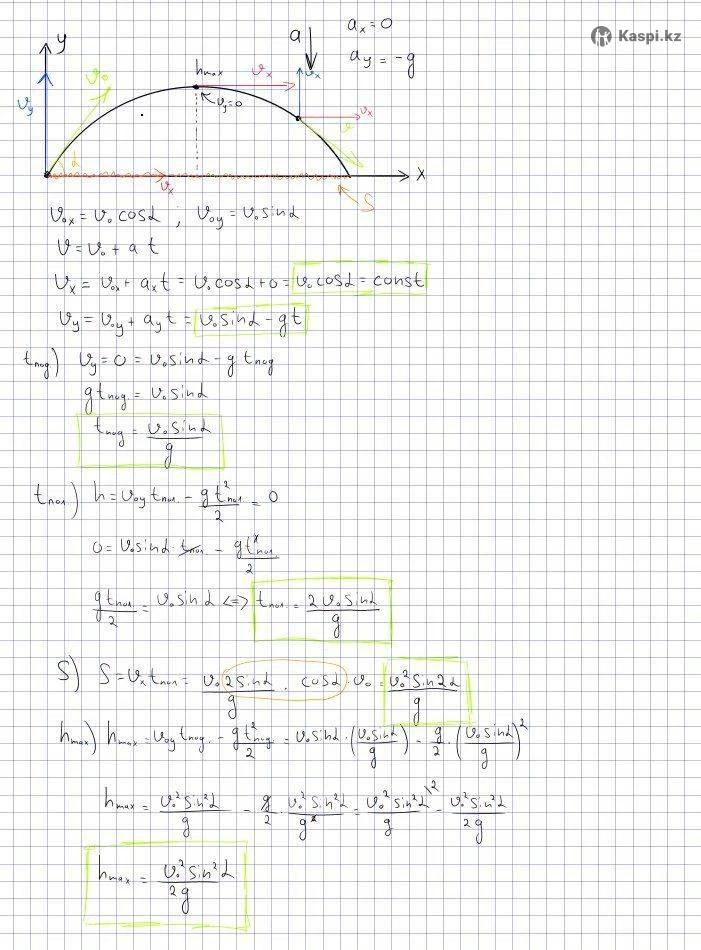 y
a
aₓ = 0
a_y = -g
Kaspi.kz
h_max
vₓ
v_y = 0
v₀
v_y
vₓ
vₓ
v
α
vₓ
x
S
v₀ₓ = v₀ cosα ; v₀y = v₀ sinα
v = v₀ + a t
vₓ = v₀ₓ + aₓt = v₀ cosα + 0 = v₀ cosα = const
v_y = v₀y + a_y t = v₀ sinα - gt
t_под) v_y = 0 = v₀ sinα - g t_под
g t_под = v₀ sinα
t_под = v₀ sinα / g
t_пол) h = v₀y t_пол - g t²_пол / 2 = 0
0 = v₀ sinα · t_пол - g t²_пол / 2
g t_пол / 2 = v₀ sinα <=> t_пол = 2 v₀ sinα / g
S) S = vₓ t_пол = v₀ 2 sinα / g · cosα · v₀ = v₀² sin2α / g
h_max) h_max = v₀y t_под - g t²_под / 2 = v₀ sinα · (v₀ sinα / g) - g/2 · (v₀ sinα / g)²
h_max = v₀² sin²α / g - g/2 · v₀² sin²α / g² = v₀² sin²α / g \² - v₀² sin²α / 2g
h_max = v₀² sin²α / 2g